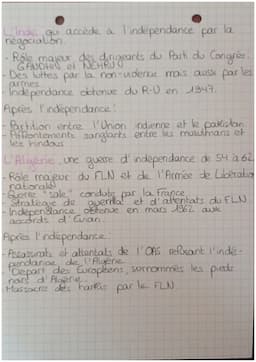 L'Inde, qui accède à l'indépendance par la
négociation.
- Rôle majeur des dirigeants du Parti du Congrès:
GANDHI et NEHRU
- Des luttes par la non-violence mais aussi par les
armes
- Indépendance obtenue du R-U en 1947.
Après l'indépendance:
- Partition entre l'Union indienne et le pakistan.
- Affrontements sanglants entre les musulmans et
les hindous
L'Algérie, une guerre d'indépendance de 54 à 62
- Rôle majeur du FLN et de l'Armée de Libération
nationale
- Guerre "sale" conduite par la France
- Stratégie de guerilla et d'attentats du FLN
- Indépendance obtenue en mars 1962 aux
accords d'Evian.
Après l'indépendance:
- Assassinats et attentats de l'OAS refusant l'indé-
pendance de l'Algérie
- Départ des Européens, surnommés les pieds
noirs d'Algérie
- Massacre des harkis par le FLN